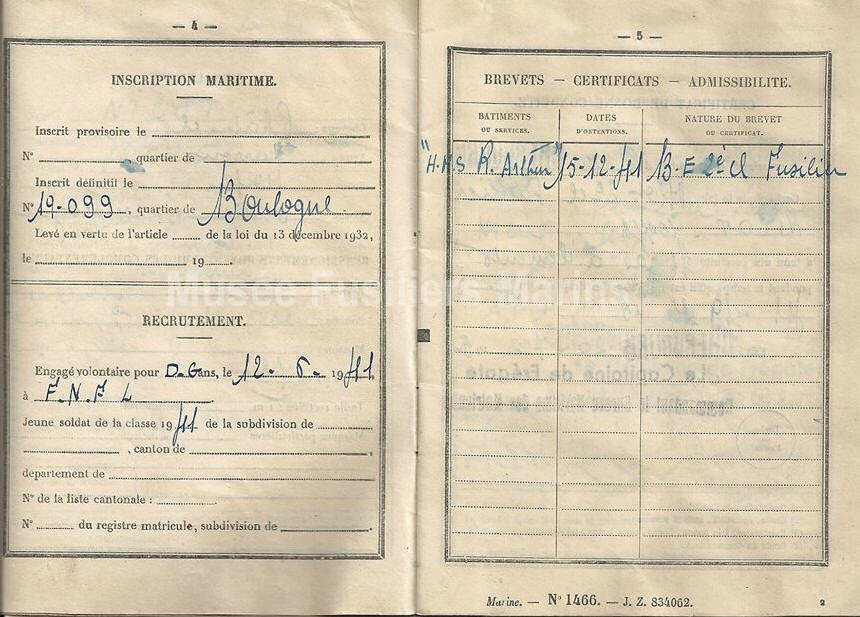 — 4 —
INSCRIPTION MARITIME.
Inscrit provisoire le
N° , quartier de
Inscrit définitif le
N° 19-099, quartier de Boulogne
Levé en vertu de l'article de la loi du 13 décembre 1932,
le 19
RECRUTEMENT.
Engagé volontaire pour D.G ans, le 12- 6- 1941,
à F.N.F L
Jeune soldat de la classe 1941 de la subdivision de
, canton de
departement de
N° de la liste cantonale :
N° du registre matricule, subdivision de .
— 5 —
BREVETS — CERTIFICATS — ADMISSIBILITE.
BATIMENTS OU SERVICES.
DATES D'OBTENTIONS.
NATURE DU BREVET OU CERTIFICAT.
"H.M.S R. Arthur" 15-12-41 B.E 2è cl Fusilier
Marine. — N° 1466. — J. Z. 834062.
2
Musée Fusiliers Marins